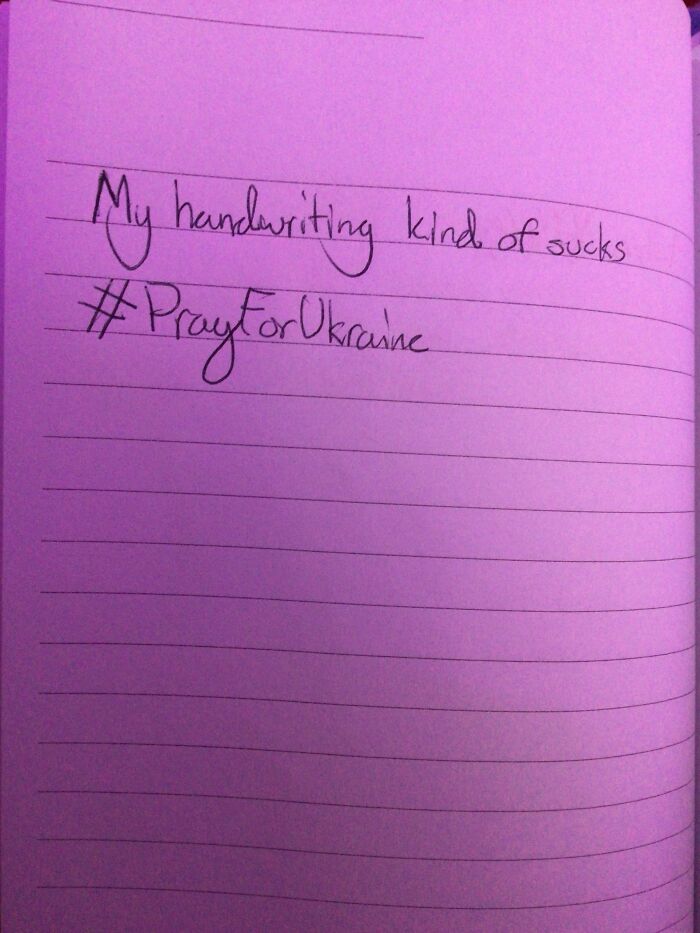 My handwriting kind of sucks
#PrayForUkraine